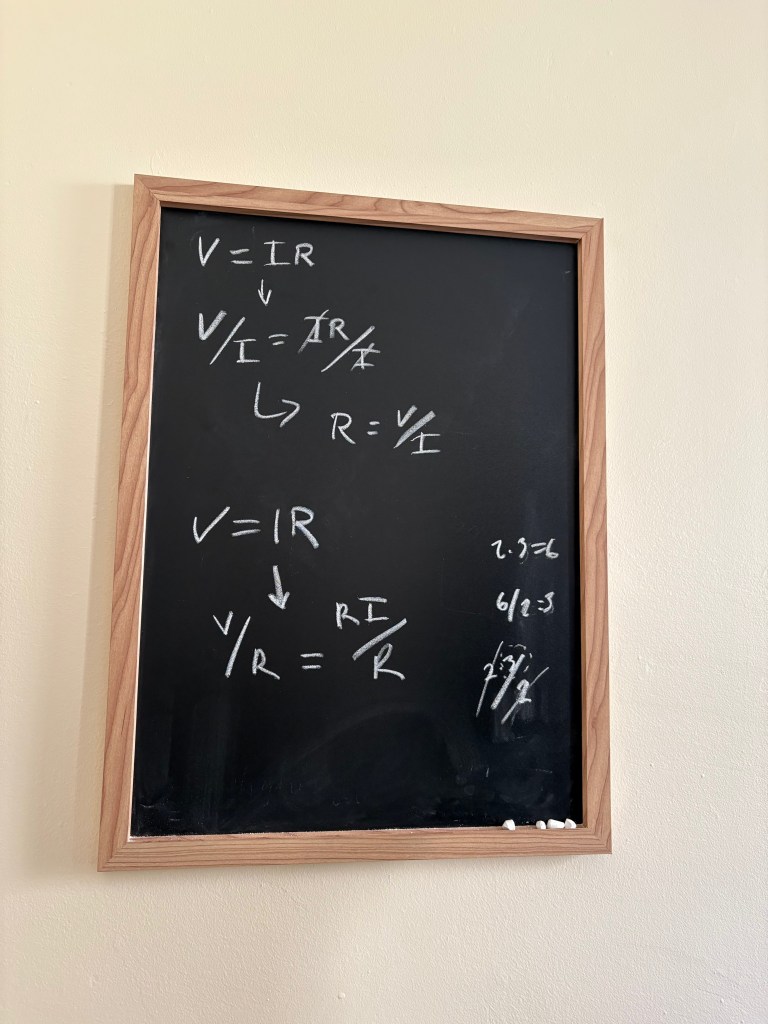 V = IR
↓
V/I = IR/I
↳ R = V/I
V = IR
↓
V/R = RI/R
2·3=6
6/2=3
2·3/2